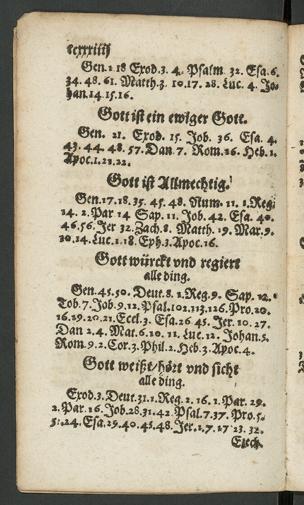 ccxxxiiij
Gen.2.18 Exod.3.4. Psalm. 32. Esa.6.
34. 48. 61. Matth.3. 10.17. 28. Luc. 4. Jo⸗
han.14.15.16.
Gott ist ein ewiger Gott.
Gen. 21. Exod. 15. Job. 36. Esa. 4.
43. 44. 48. 57. Dan 7. Rom.16. Heb.1.
Apoc.1.21.22.
Gott ist Allmechtig.
Gen.17.18.35. 45. 48. Num. 11. 1.Reg:
14. 2. Par 14 Sap. 11. Job. 42. Esa. 40.
46.56. Jer 32. Zach.8. Matth. 19. Mar.9.
10.14. Luc.1.18. Eph.3. Apoc.16.
Gott würckt vnd regiert
alle ding.
Gen.45.50. Deut.8. 1.Reg.9. Sap. 12.
Tob.7. Job.9.12. Psal.102.113.126. Pro.20.
16.19.20.21. Eccl.3. Esa.26 45. Jer.10.27.
Dan 2.4. Mat.6.10. 11. Luc.12. Johan.5.
Rom.9.2. Cor.3. Phil.2. Heb.3. Apoc.4.
Gott weißt/hört vnd sicht
alle ding.
Exod.3. Deut.31.1. Reg.2. 16. 1.Par. 29.
2. Par.16. Job.28.31.42. Psal.7.37. Pro.5.
24. Esa.29.40.45.48. Jer.1.7.17 23.32.
Ezech.